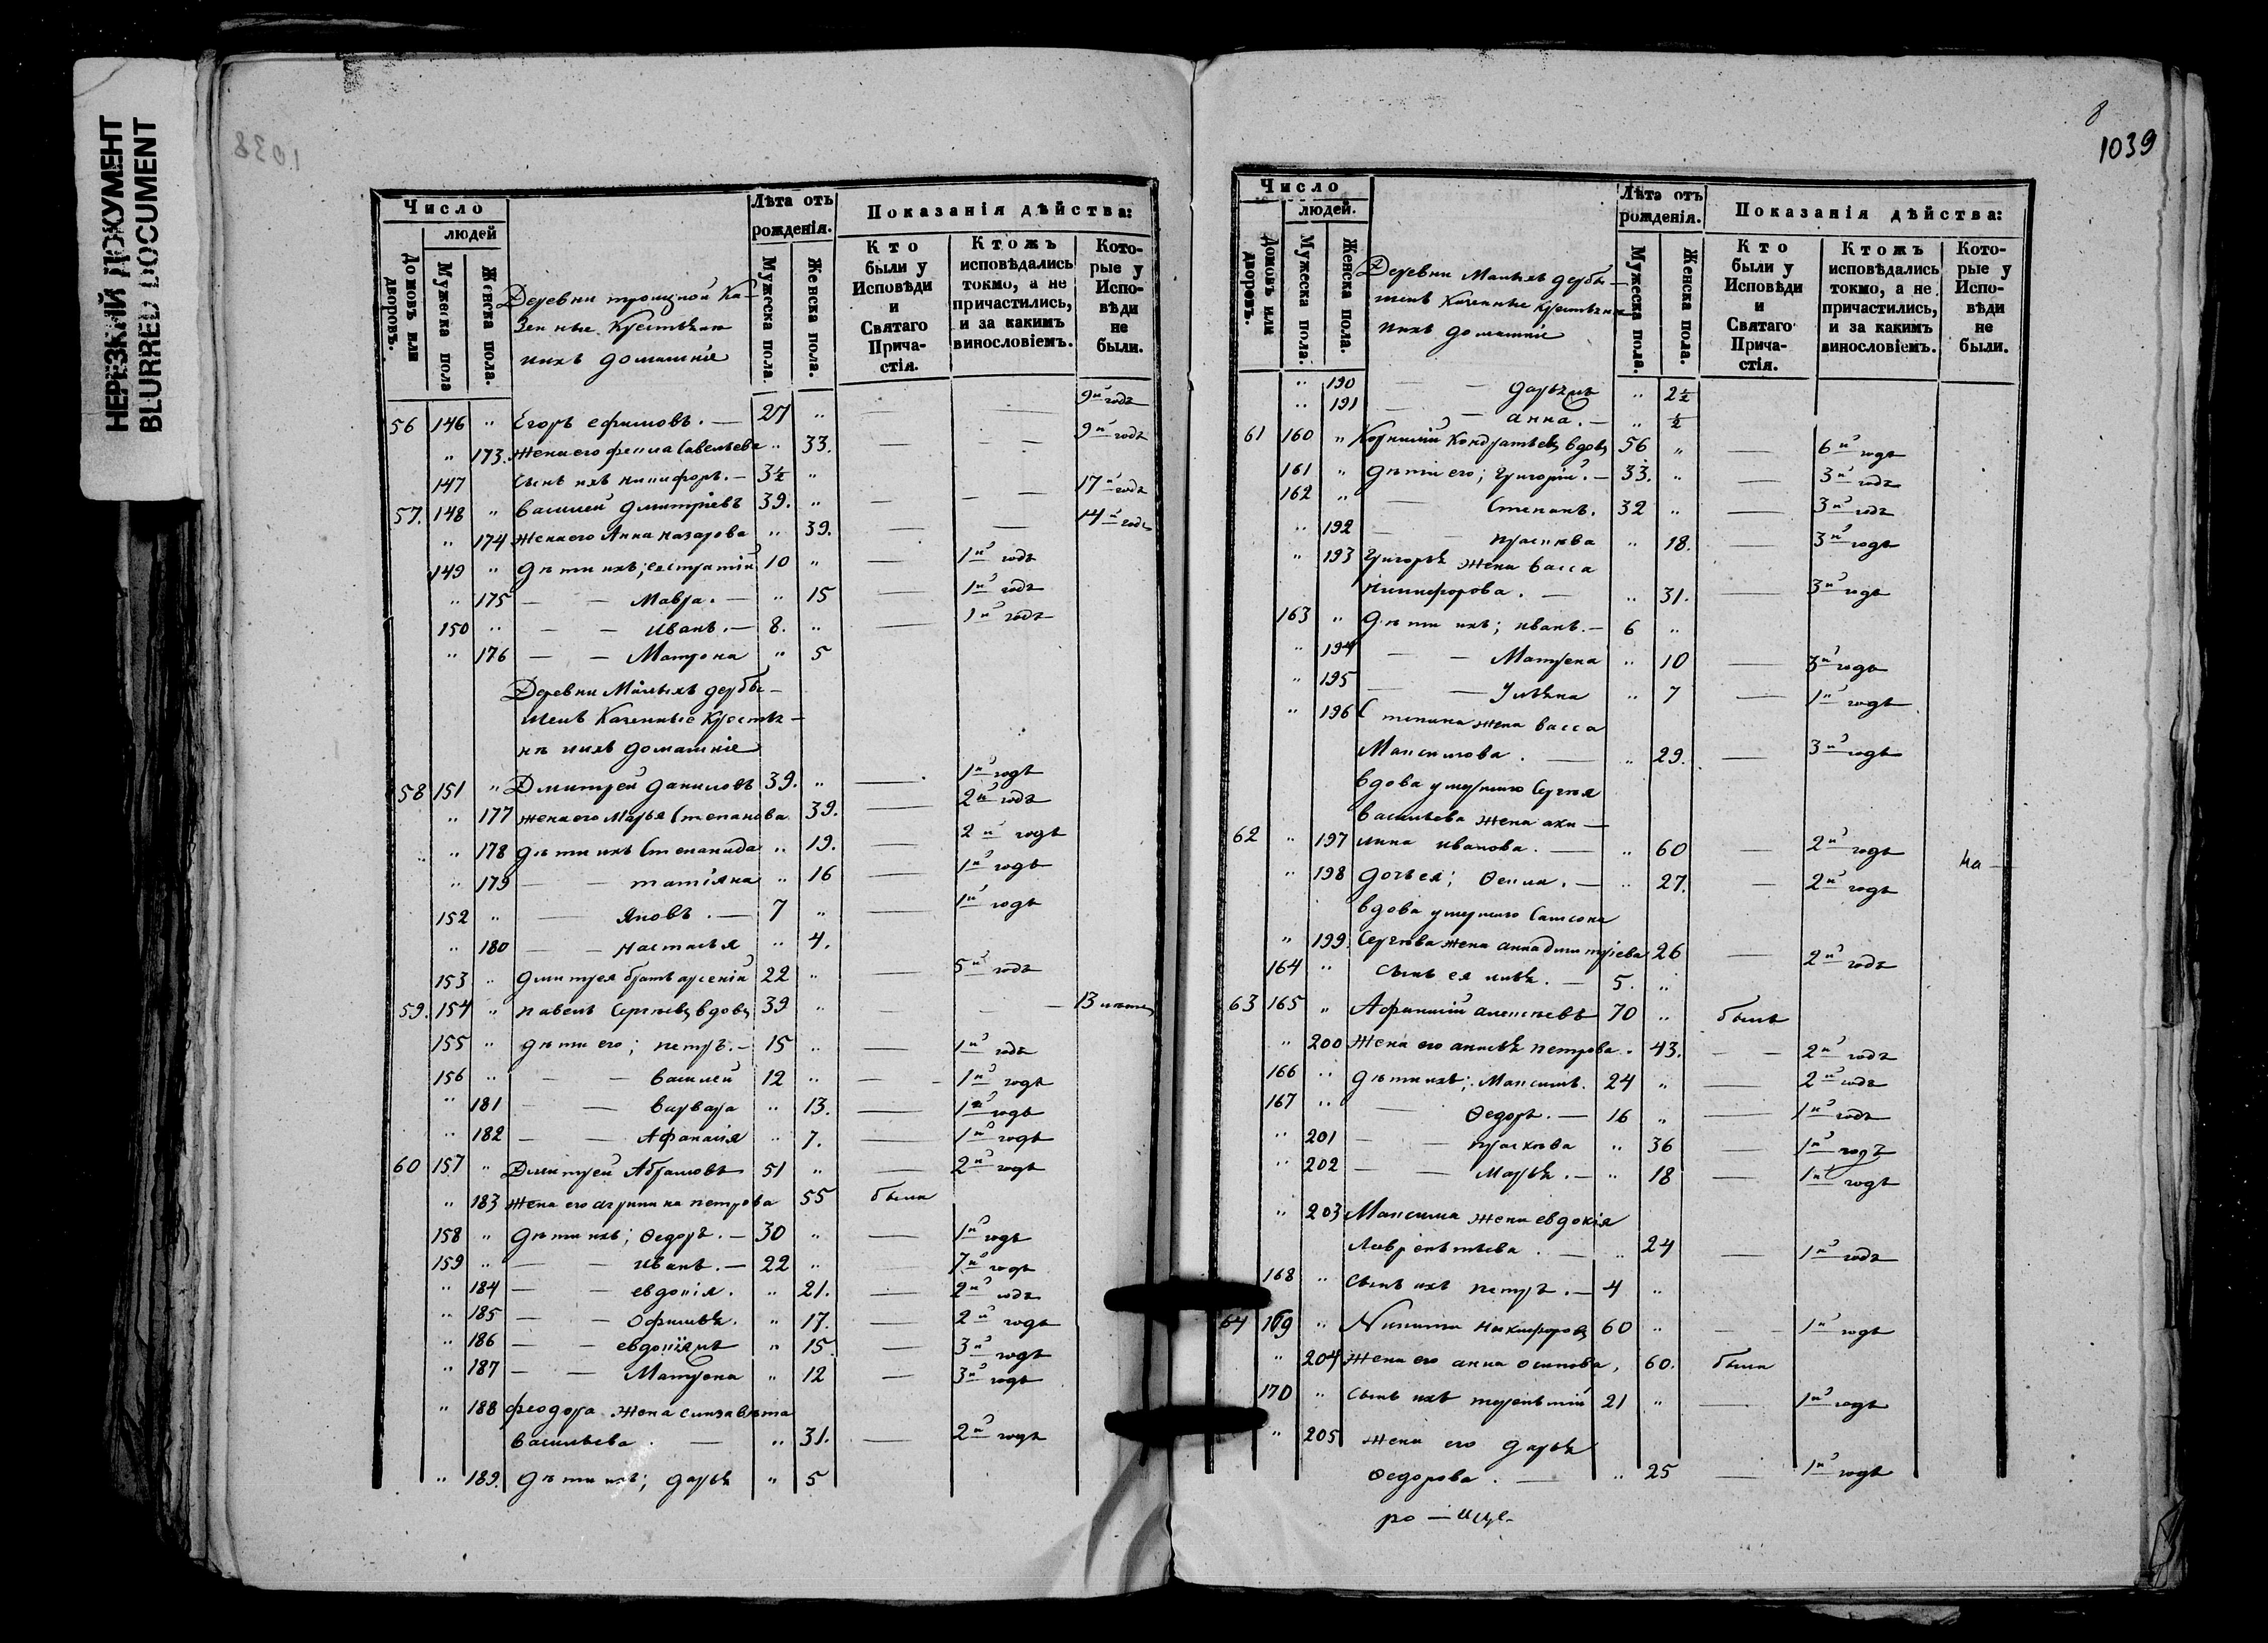 НЕРЕЗКИЙ ДОКУМЕНТ
BLURRED DOCUMENT
1038
Число
людей
Домовъ или дворовъ.
Мужеска пола
Женска пола.
Деревни троицкой Ка-
зенные Крестьяне
ихъ домашніе
Лѣта отъ рожденія.
Мужеска пола.
Женска пола.
Показанія дѣйства:
Кто были у Исповѣди и Святаго Прича- стія.
Ктожъ исповѣдались токмо, а не причастились, и за какимъ винословіемъ.
Кото- рые у Испо- вѣди не были.
56 146 " Егоръ ефимовъ. — 27 " 9й годъ
" 173. Жена его фекла Савельева " 33. — — — 9й годъ
147 Сынъ ихъ никифоръ. — 3½ "
57. 148 " василей дмитріевъ 39. " — — — 17й годъ
" 174 жена его Анна назарова " 39. — — 14й годъ
149 " дѣти ихъ; евстратій 10 " — 1й годъ
" 175 — — Мавра. — " 15 — 1й годъ
150 " — — иванъ. — 8. " — 1й годъ
" 176 — — Матрона " 5
Деревни Малыхъ дербы-
шекъ Казенные Крестья-
не ихъ домашніе
58 151 " Дмитрей даниловъ 39. " — 1й годъ
" 177 жена его Марья Степанова 39. — 2й годъ
" " 178 дѣти ихъ Степанида " 19. — 2й годъ
" 179 — — татіяна " 16 — 1й годъ
152 " — Яковъ. — 7 " — 1й годъ
" 180 — — настасья " 4.
153 " дмитрея братъ арсеній 22 " — 5й годъ
59. 154 " павелъ Сергѣевъ вдовъ 39 " — — — 13
155 " дѣти его; петръ. — 15 " — 1й годъ
156 " — — василей 12 " — - 1й годъ
" 181 — — варвара " 13. — 1й годъ
" 182 — — Афанасія " 7. — 1й годъ
60 157 " Дмитрей Абрамовъ 51 " — 2й годъ
" 183 жена его агрипина петрова 55 была
158 " дѣти ихъ; Ѳедоръ. — 30 " — 1й годъ
159 " — — иванъ. — 22 " — 7й годъ
" 184 — — евдокія. " 21. — 2й годъ
" 185 — — Офимья. " 17. — 2й годъ
" 186 — — " 15. — 3й годъ
" 187 — — Матрона " 12 — 3й годъ
" 188 феодора жена елизавета
васильева. — " 31. — 2й годъ
" 189. дѣти ихъ; дарья " 5
8
1039
Число
людей.
Домовъ или дворовъ.
Мужеска пола.
Женска пола.
Деревни Малыхъ дербы-
шекъ Казенные Крестьяне
ихъ домашніе
Лѣта отъ рожденія.
Мужеска пола.
Женска пола.
Показанія дѣйства:
Кто были у Исповѣди и Святаго Прича- стія.
Ктожъ исповѣдались токмо, а не причастились, и за какимъ винословіемъ.
Кото- рые у Испо- вѣди не были.
" 190 — — " 2½
" 191 — — анна. — " ½
61 160 " Корнилій Кондратьевъ вдовъ 56 " — 6й годъ
161 " дѣти его; Григорій. — 33. " — 3й годъ
162 " — Степанъ. 32 " — 3й годъ
" 192 — — прасковa " 18. — 3й годъ
" 193 Григорья жена васса
никифорова. — " 31. — 3й годъ
163 " дѣти ихъ; иванъ. — 6 "
" 194 — — Матрена " 10 — 3й годъ
" 195 — — Ульяна " 7 — 1й годъ
" 196 Степана жена васса
Максимова. — " 29. — 3й годъ
вдова умершаго Сергея
васильева жена аку-
62 " 197 лина иванова. — " 60 — 2й годъ
на
" 198 дочь ея; Ѳекла. — " 27. — 2й годъ
вдова умершаго Самсона
" 199. Сергѣева жена анна дмитріева 26 — 2й годъ
164 " сынъ ея илья. — 5. "
63 165 " Афанасій алексѣевъ 70 " былъ
" 200 Жена его анисья петрова. 43. — — 2й годъ
166 " дѣти ихъ; Максимъ. 24 " — 2й годъ
167 " — Ѳедоръ. — 16 " — 1й годъ
" 201 — — прасковa " 36 — 1й годъ
" 202 — — Марья. — " 18 — 1й годъ
" 203 Максима жена евдокія
Лаврентьева. — " 24 — 1й годъ
168 " сынъ ихъ петръ. — 4 "
64 169 " Никита никифоровъ 60 " — - 1й годъ
" 204 жена его анна осипова, 60. была
170 " сынъ ихъ терентій 21 " — 1й годъ
" 205 жена его дарья
Ѳедорова. — " 25 — 1й годъ